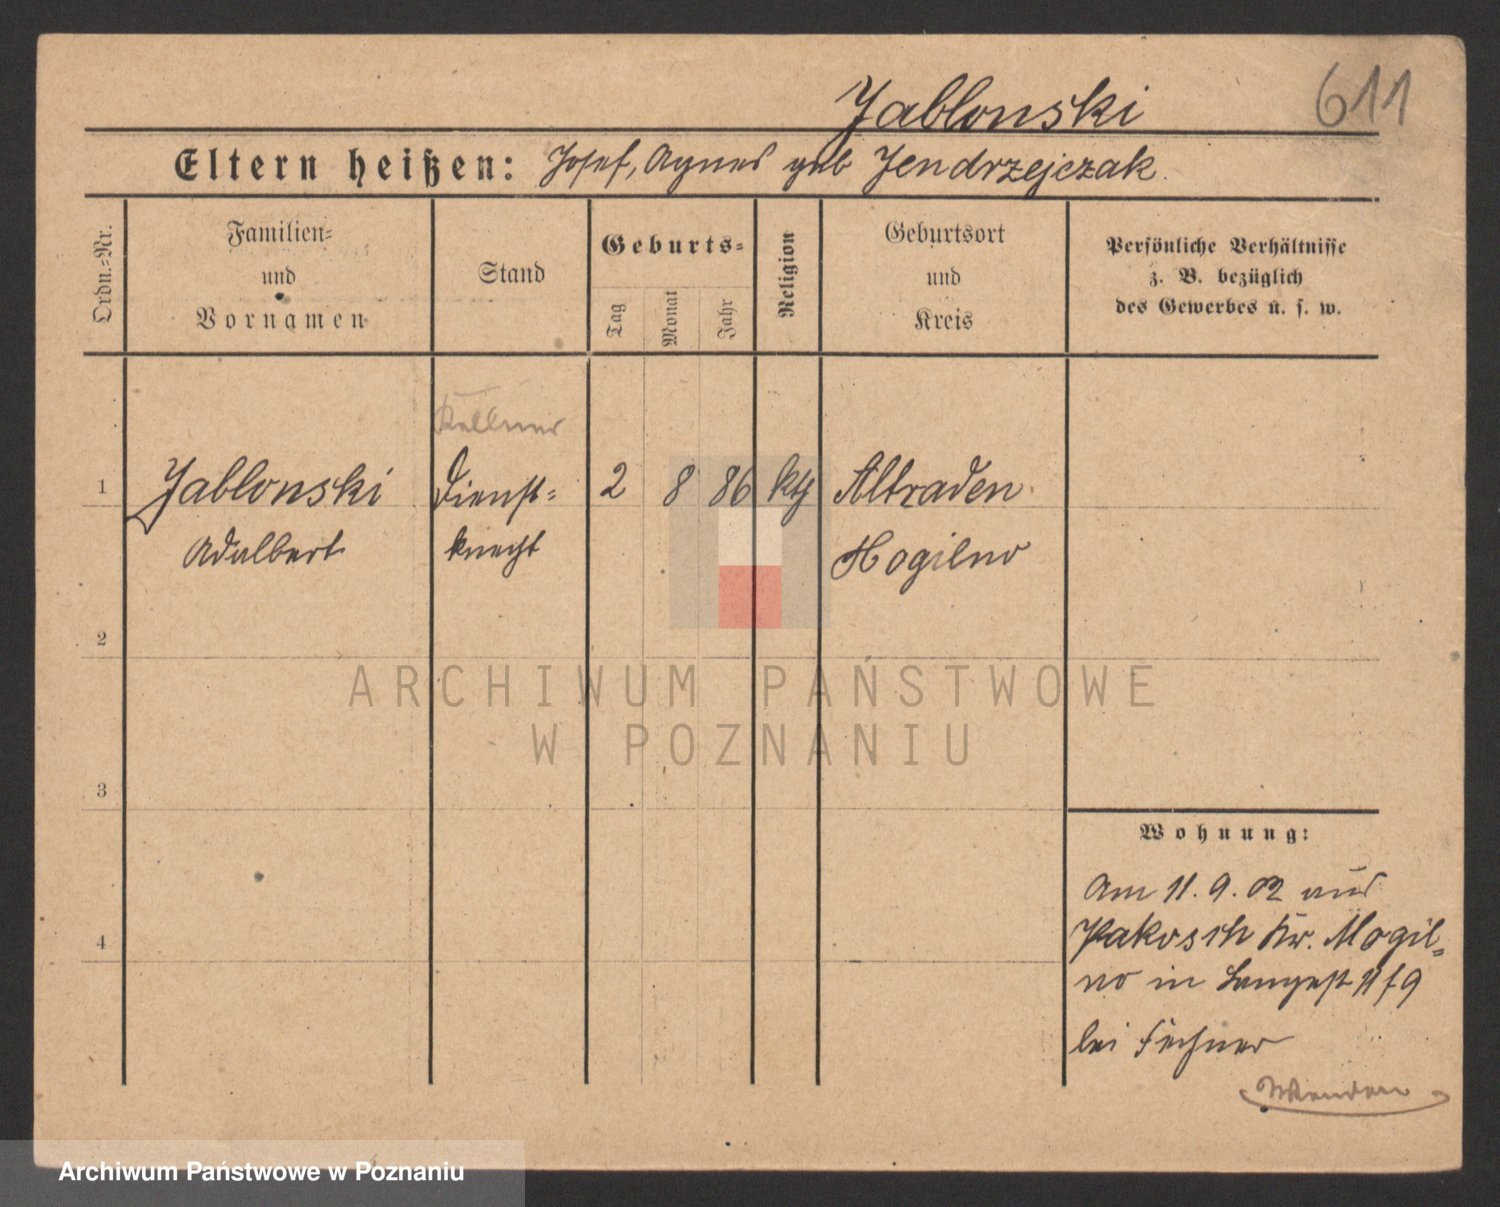 611
Jablonski
Eltern heißen: Josef, Agnes geb Jendrzejczak.
Ordn.=Nr.
Familien=
und
Vornamen
Stand
Geburts=
Tag
Monat
Jahr
Religion
Geburtsort
und
Kreis
Persönliche Verhältnisse
z. B. bezüglich
des Gewerbes u. s. w.
Kellner
1 Jablonski Dienst= 2 8 86 kth Altraden
Adalbert knecht Mogilno
2
ARCHIWUM PAŃSTWOWE
W POZNANIU
3
Wohnung:
Am 11.9.02 aus
4 Pakosch Kr. Mogil=
no in 11/9
bei Fechner
Wenden
Archiwum Państwowe w Poznaniu